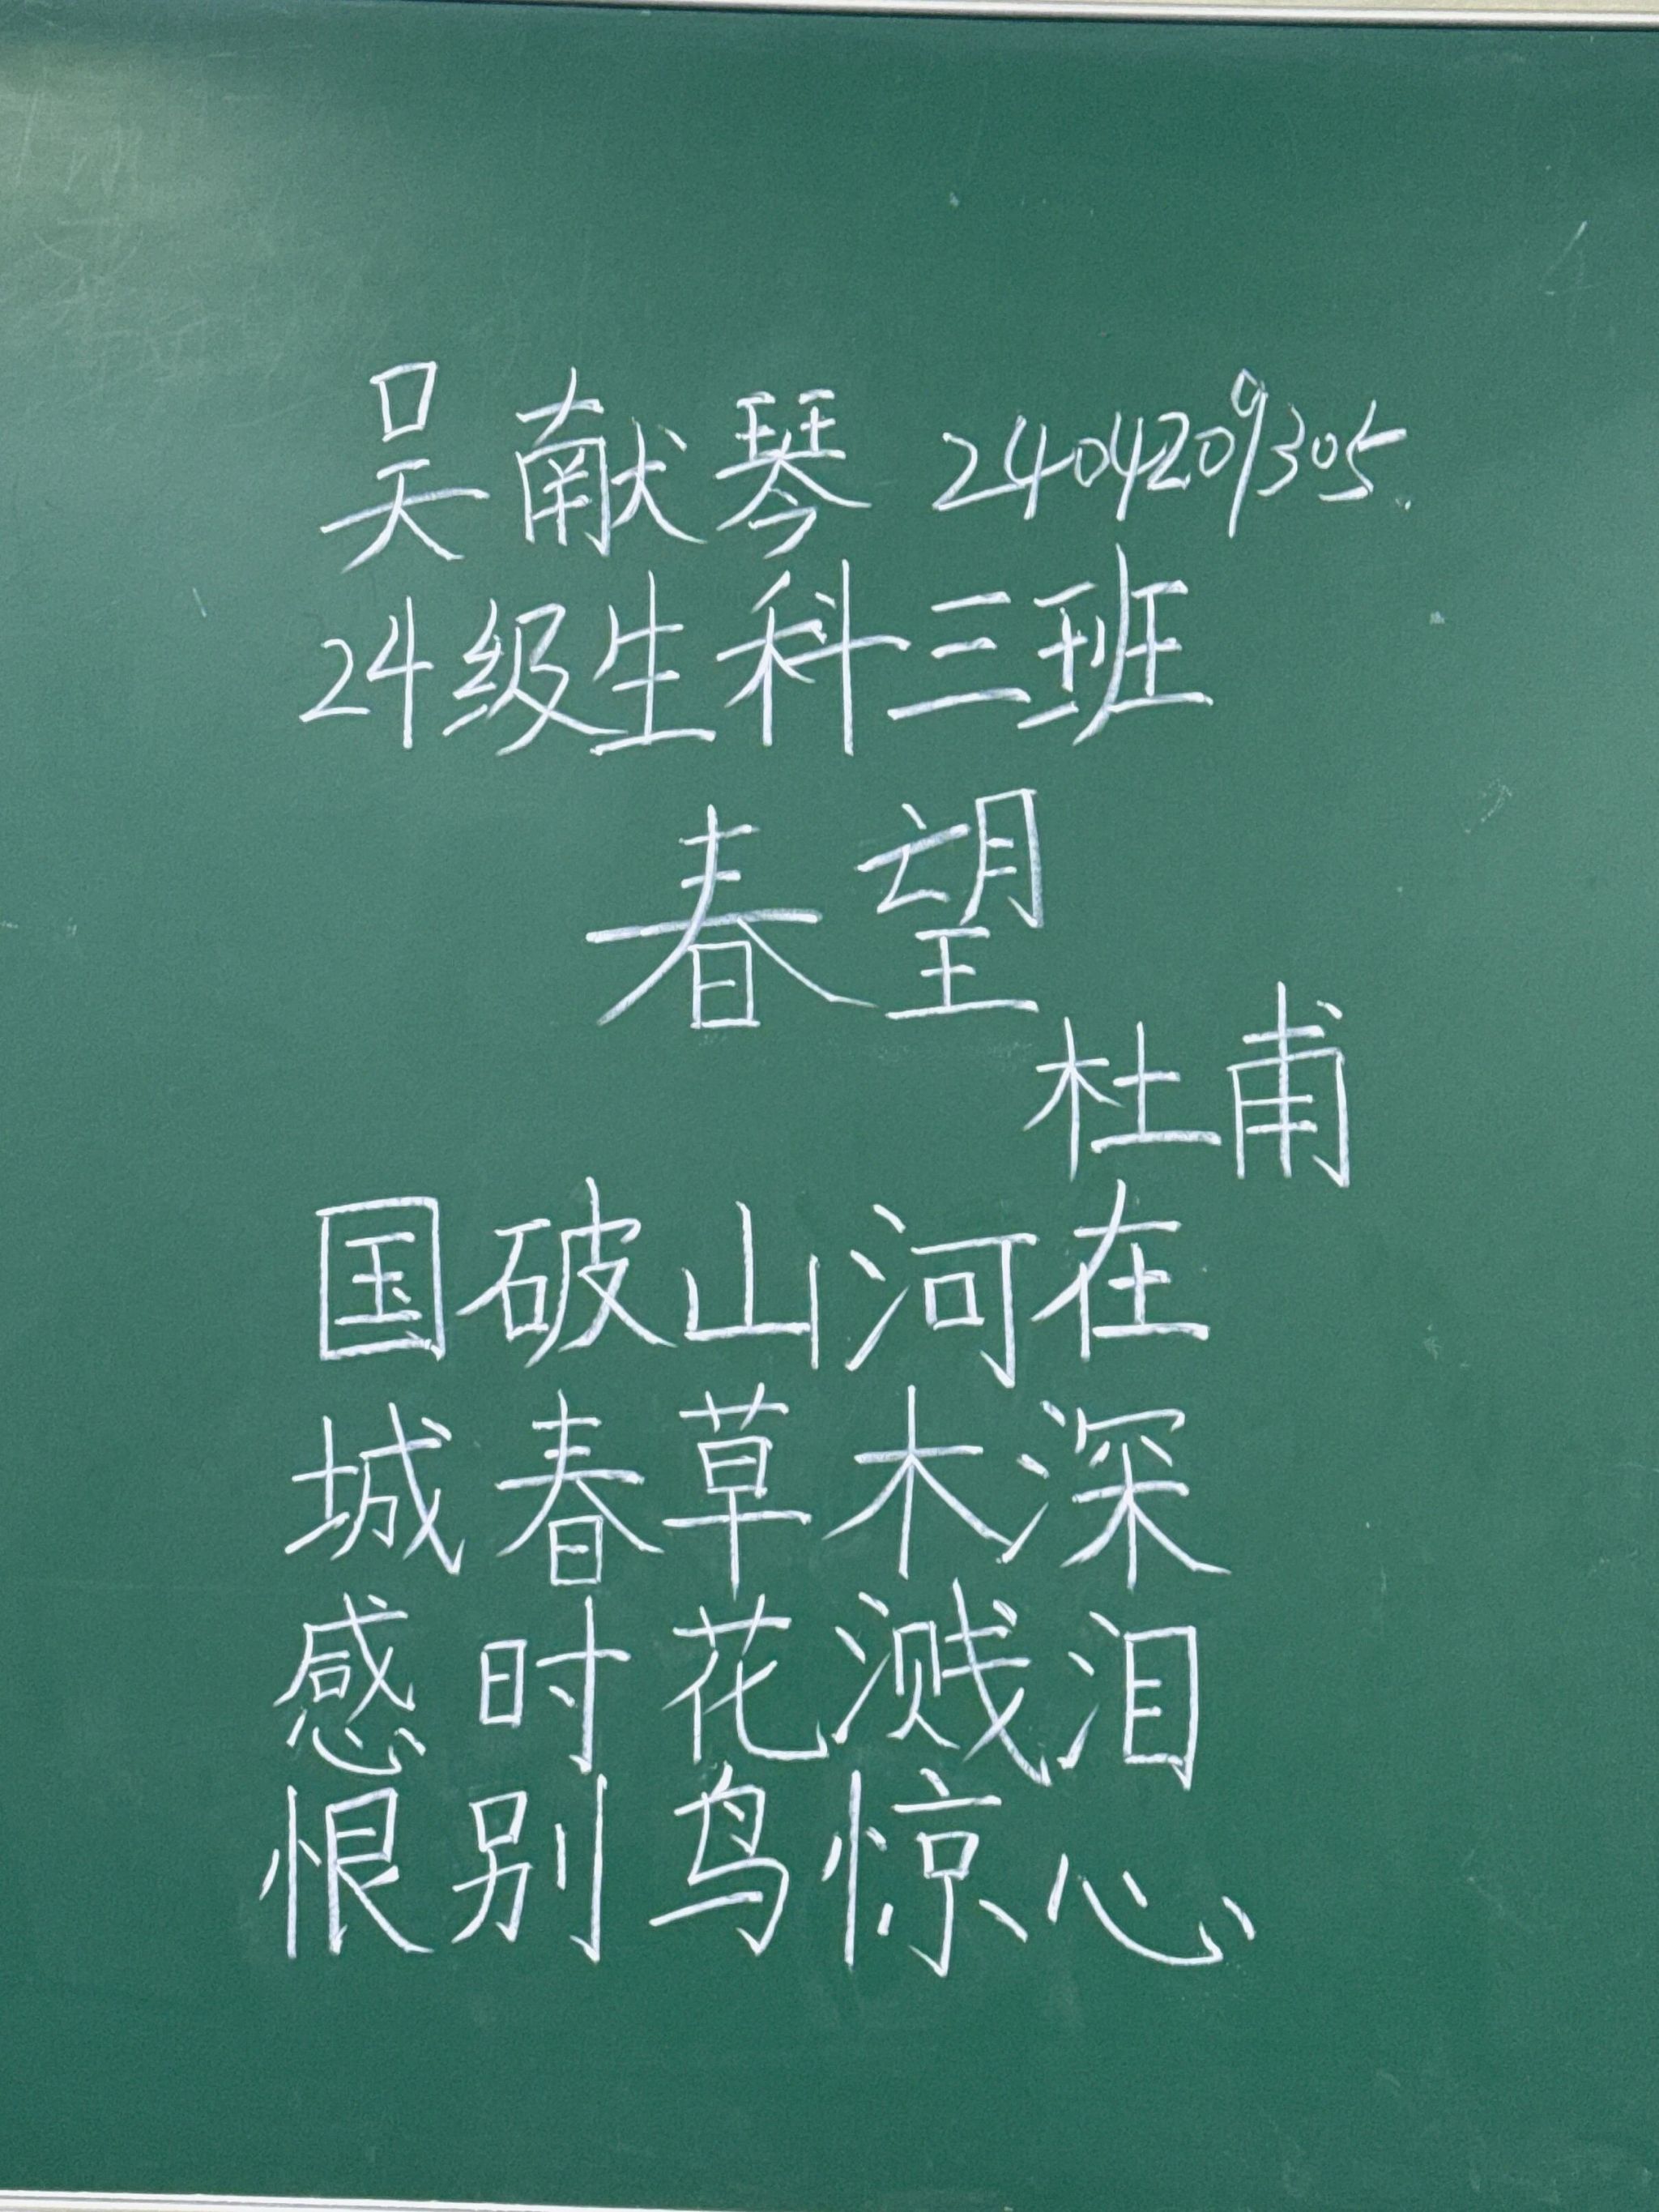 吴献琴 2404209305
24级生科三班
春望
杜甫
国破山河在
城春草木深
感时花溅泪
恨别鸟惊心